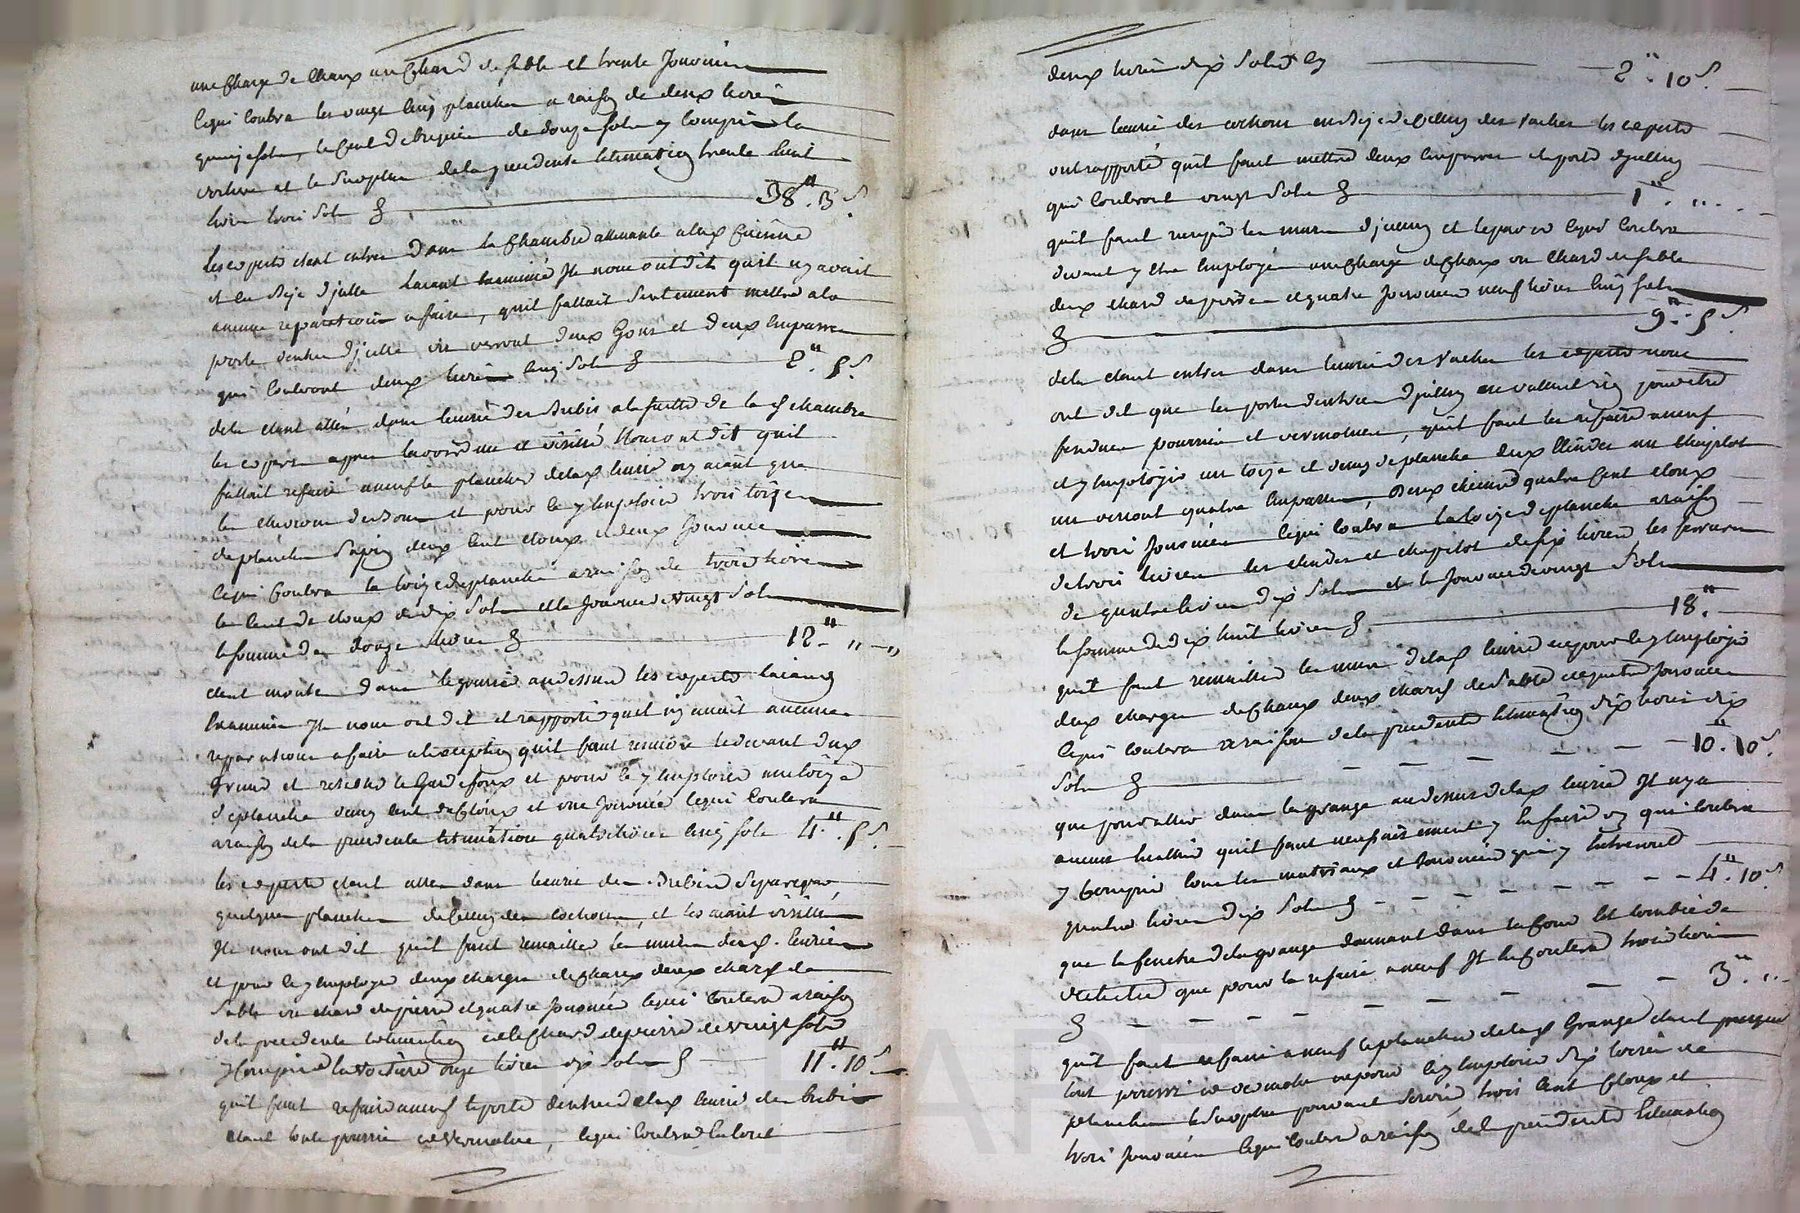 une charge de chaux un chard de sable et trente Journées
ce qui coutera les vingt cinq planches a raison de deux livres
quinze sols, le cent de briques de douze sols y compris la
voiture et le surplus de la precedente estimation trente huit
livres trois sols 38." 3.s
les experts etant entrés dans la chambre attenante a la d. Cuisine
et au dessus d'jcelle l'aiant examinée Jls nous ont dit qu'il n'y avait
aucune reparation a faire, qu'il fallait seulement mettre a la
porte d'entrée d'jcelle un verrout deux Gons et deux emparres
qui couteront deux livres cinq sols 2." 5.s
de la etant allés dans l'ecurie des Brebis a la suitte de la d. chambre
les experts apres l'avoir vue et visitté Nous ont dit qu'il
fallait refaire a neuf le plancher de la d. ecurie n'y aiant que
les chevrons de bons et pour ce y emploier trois toises
de planches sapin deux cent cloux et deux Journées
ce qui coutera la toise de planche a raison de trois livres
le cent de cloux de dix sols et la Journée de vingt sols
la somme de douze livres 12." " - "
etant montés dans le grenier au dessus les experts l'aiant
examiné Jls nous ont dit et rapporté qu'il n'y avait aucunes
reparations a faire a l'exception qu'il faut remettre le devant du d.
Grenier et retablir le Gardefoux et pour ce y emploier une toise
de planche deux cent de cloux et une Journée ce qui coutera
a raison de la precedente estimation quatre livres cinq sols 4." 5.s
les experts etant allés dans l'ecurie des Brebis separée par
quelques planches de celle des cochons, et les aiant visitté
Jls nous ont dit qu'il faut remailler les murs des d. ecuries
et pour ce y employer deux charges de chaux deux chards de
sable un chard de pierre et quatre Journées ce qui coutera a raison
de la precedente estimation et le chard de pierre de vingt sols
y compris la voiture onze livres dix sols 11." 10.s
qu'il faut refaire a neuf la porte d'entrée de la d. ecurie des brebis
etant toute pourrie et vermolue, ce qui coutera en tout
deux livres dix sols cy 2." 10.s
dans l'ecurie des cochons au dessus de celle des vaches les experts
ont rapporté qu'il faut mettre deux emparres a la porte d'jcelle
qui couteront vingt sols 1." ".
qu'il faut recrepir les murs d'jcelle et le pavé ce qui coutera
devant y etre employé une charge de chaux un chard de sable
deux chard de pierre et quatre Journées neuf livres cinq sols
9." 5.s
de la etant entrés dans l'ecurie des vaches les experts nous
ont dit que les portes d'entrée d'jcelle ne vallent rien pour etre
fendues pourries et vermolues, qu'il faut les refaire a neuf
et y emploier une toise et demy de planche deux lindes un chapitot
un verrout quatre emparres, deux chienne quatre cent cloux
et trois Journées ce qui coutera la toise de planche a raison
de trois livres les lindes et chapitot de six livres les ferrures
de quatre livres dix sols et la Journée de vingt sols
la somme de dix huit livres 18."
qu'il faut remailler les murs de la d. ecurie et pour ce y emploier
deux charges de chaux deux chards de sable et quatre Journées
ce qui coutera a raison de la precedente estimation dix livres dix
sols 10." 10.s
que pour aller dans la grange au dessus de la d. ecurie Jl n'y a
aucun escallier qu'il faut necessairement y en faire un qui coutera
y compris tous les materiaux et Journées qui y entreront
quatre livres dix sols 4." 10.s
que la fenetre de la grange donnant dans la cour est tombée de
vetusté que pour la refaire a neuf Jl en coutera trois livres
3." "
qu'il faut refaire a neuf le plancher de la d. Grange etant presque
tout pourri et vermolu et pour ce y emploier dix toises de
planches le surplus pouvant servir trois cent cloux et
trois Journées ce qui coutera a raison de la precedente estimation